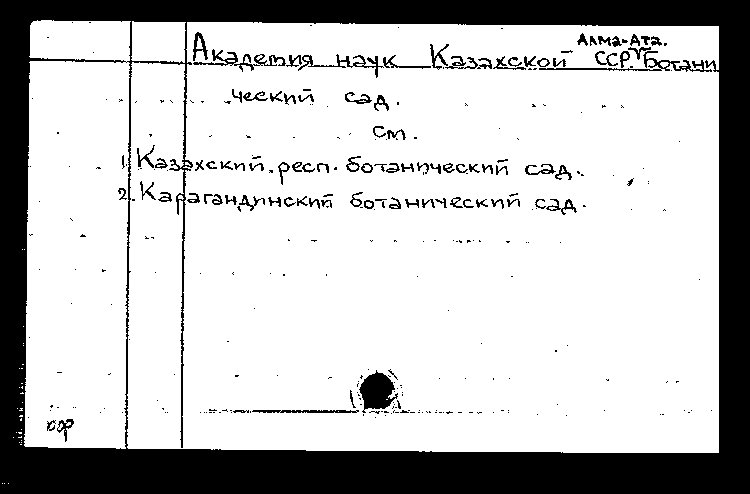 Алма-Ата.
Академия наук Казахской ССР. Ботани
ческий сад.
см.
1. Казахский респ. ботанический сад.
2. Карагандинский ботанический сад.